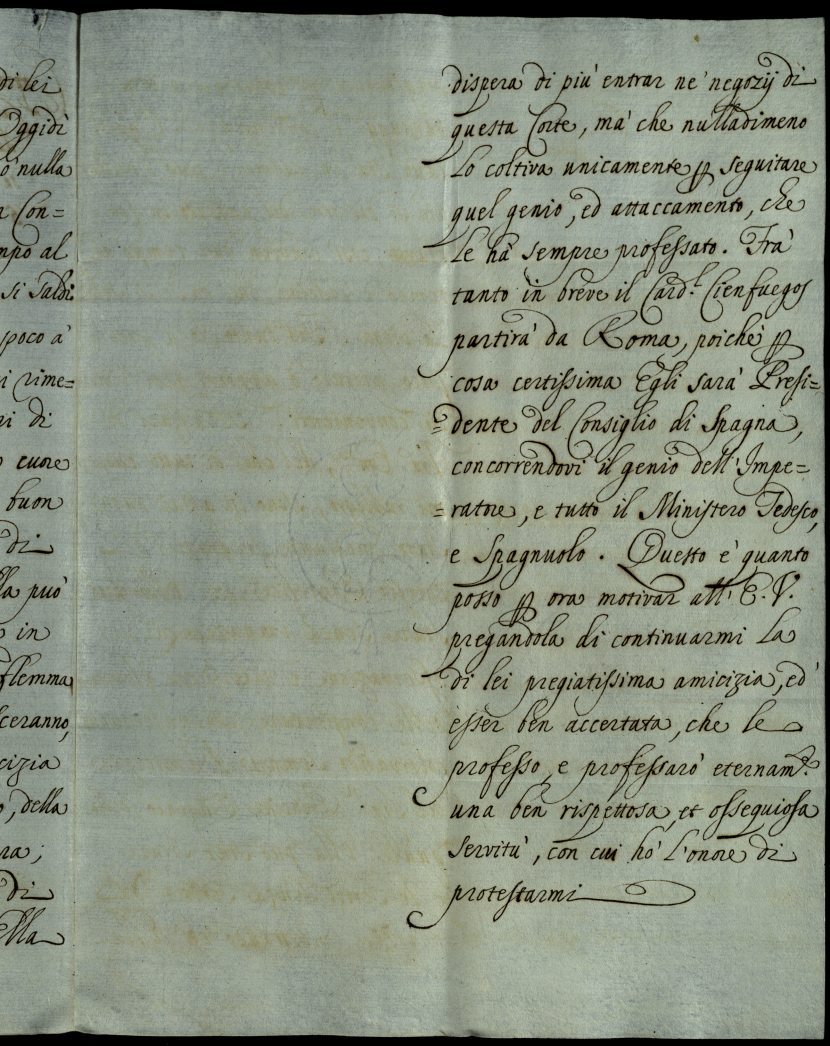 di lei
Oggidì
ò nulla
Con=
mpo al
si saldi
poco à
i rime=
ri di
cuore
buon
di
la può
in
flemma
ceranno,
cizia
o, della
ra;
di
ella
dispera di più entrar ne' negozij di
questa Corte, mà che nulladimeno
lo coltiva unicamente p seguitare
quel genio, ed attaccamento, che
le hà sempre professato. Frà
tanto in breve il Card.l Cienfuegos
partirà da Roma, poichè p
cosa certissima Egli sarà Presi=
=dente del Consiglio di Spagna,
concorrendovi il genio dell'Impe=
=ratore, e tutto il Ministero Tedesco,
e Spagnuolo. Questo è quanto
posso p ora motivar all' E. V.
pregandola di continuarmi la
di lei pregiatissima amicizia, ed
esser ben accertata, che le
professo, e professarò eternam.te
una ben rispettosa, et ossequiosa
servitù, con cui hò l'onore di
protestarmi